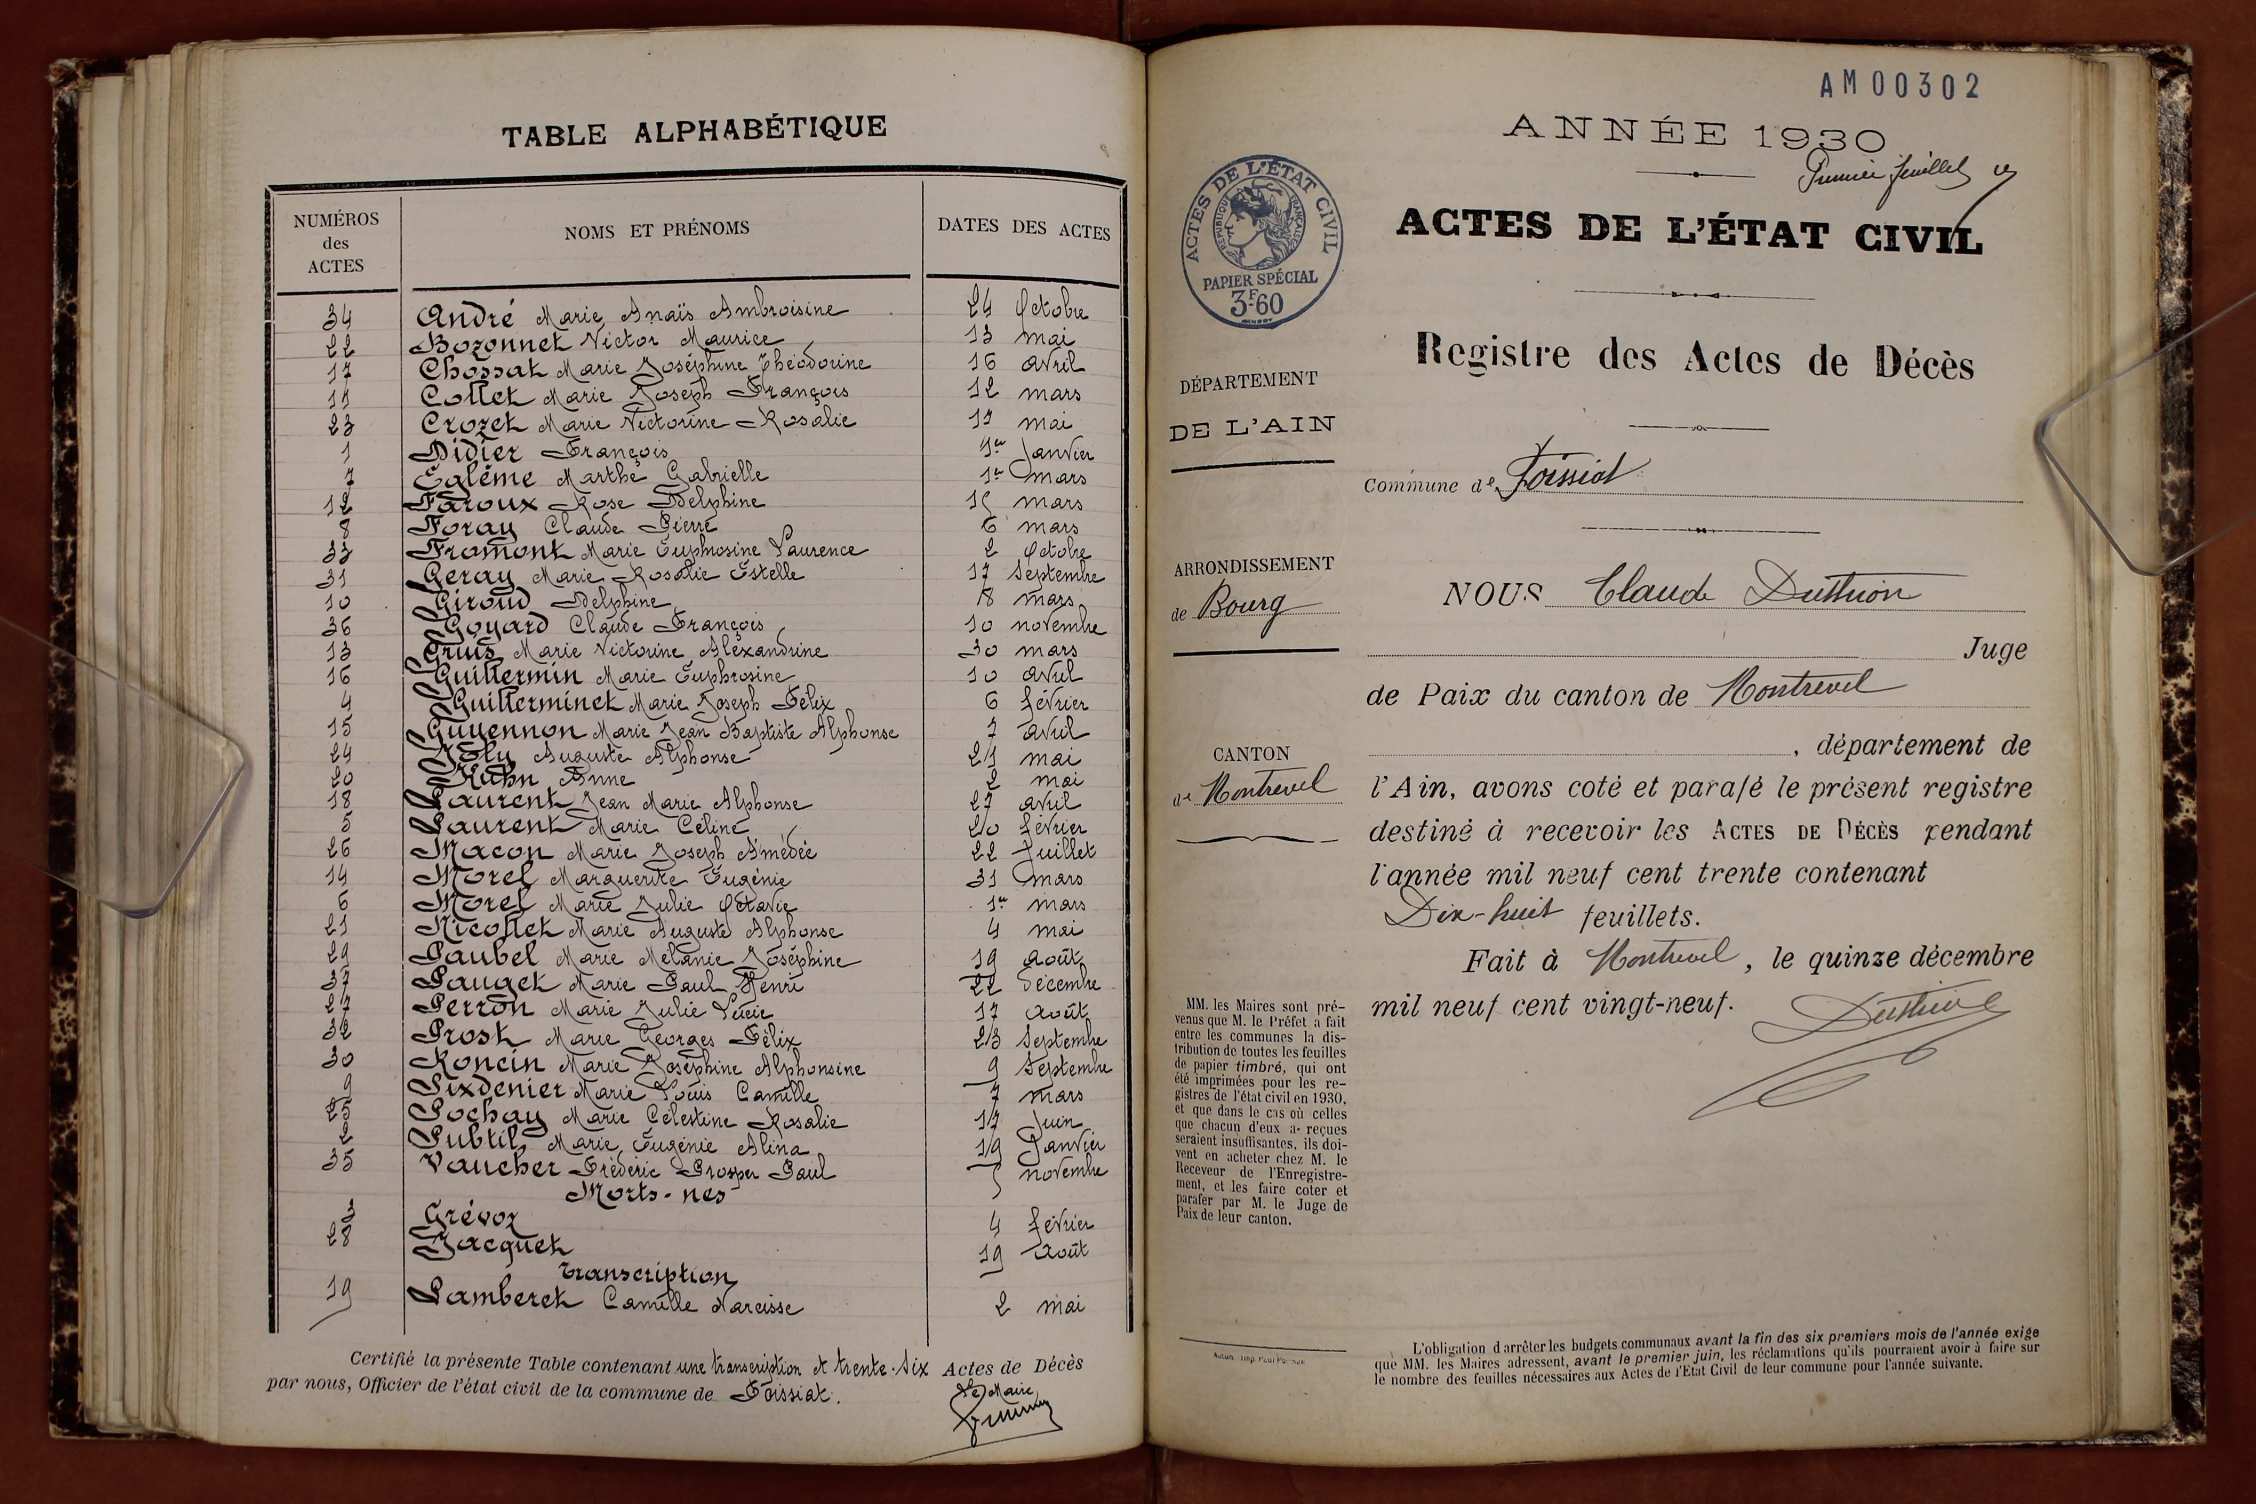 TABLE ALPHABÉTIQUE
NUMÉROS des ACTES NOMS ET PRÉNOMS DATES DES ACTES
34 André Marie Anaïs Ambroisine 24 Octobre
22 Bozonnet Victor Maurice 13 mai
17 Chossat Marie Joséphine Théodorine 16 avril
11 Collet Marie Joseph François 12 mars
23 Crozet Marie Victorine Rosalie 17 mai
1 Didier François 1er Janvier
7 Egléme Marthe Gabrielle 1er mars
12 Faroux Rose Delphine mars
8 Foray Claude Pierre 6 mars
33 Fromont Marie Euphrosine Laurence 2 Octobre
31 Geray Marie Rosalie Estelle 17 Septembre
10 Giroud Delphine 8 mars
36 Goyard Claude François 10 novembre
13 Gruis Marie Victorine Alexandrine 30 mars
16 Guillermin Marie Euphrosine 10 avril
4 Guillerminet Marie Joseph Félix 6 février
15 Guyennon Marie Jean Baptiste Alphonse 7 avril
24 Joly Auguste Alphonse 21 mai
20 Kuhn Anne 2 mai
18 Laurent Jean Marie Alphonse 27 avril
5 Laurent Marie Céline 20 février
26 Macon Marie Joseph Amédée 22 Juillet
14 Morel Marguerite Eugénie 31 mars
6 Morel Marie Julie Octavie 1er mars
21 Nicollet Marie Auguste Alphonse 4 mai
29 Paubel Marie Mélanie Joséphine 19 août
37 Pauget Marie Paul Henri 22 décembre
27 Perron Marie Julie Lucie 17 août
32 Prost Marie Georges Félix 23 Septembre
30 Roncin Marie Joséphine Alphonsine 9 Septembre
9 Sixdenier Marie Louis Camille 7 mars
25 Sochay Marie Célestine Rosalie 17 Juin
2 Subtil Marie Eugénie Alina 19 Janvier
35 Vaucher Fréderic Prosper Paul 5 novembre
Morts-nés
3 Grévoz 4 février
28 Jacquet 19 août
transcription
19 Lamberet Camille Narcisse 2 mai
Certifié la présente Table contenant une transcription et trente-six Actes de Décès
par nous, Officier de l'état civil de la commune de Foissiat.
Le Maire
AM00302
ANNÉE 1930
Premier feuillet
ACTES DE L'ÉTAT CIVIL
RÉPUBLIQUE FRANÇAISE
PAPIER SPÉCIAL
3F60
ACTES DE L'ÉTAT CIVIL
Registre des Actes de Décès
DÉPARTEMENT
DE L'AIN
Commune de Foissiat
ARRONDISSEMENT
de Bourg
NOUS Claude Duthion
Juge
de Paix du canton de Montrevel
, département de
CANTON
de Montrevel
l'Ain, avons coté et parafé le présent registre
destiné à recevoir les ACTES DE DÉCÈS pendant
l'année mil neuf cent trente contenant
Dix-huit feuillets.
Fait à Montrevel, le quinze décembre
mil neuf cent vingt-neuf.
MM. les Maires sont pré-
venus que M. le Préfet a fait
entre les communes la dis-
tribution de toutes les feuilles
de papier timbré, qui ont
été imprimées pour les re-
gistres de l'état civil en 1930,
et que dans le cas où celles
que chacun d'eux a reçues
seraient insuffisantes, ils doi-
vent en acheter chez M. le
Receveur de l'Enregistre-
ment, et les faire coter et
parafer par M. le Juge de
Paix de leur canton.
L'obligation d'arrêter les budgets communaux avant la fin des six premiers mois de l'année exige
que MM. les Maires adressent, avant le premier juin, les réclamations qu'ils pourraient avoir à faire sur
le nombre des feuilles nécessaires aux Actes de l'Etat Civil de leur commune pour l'année suivante.